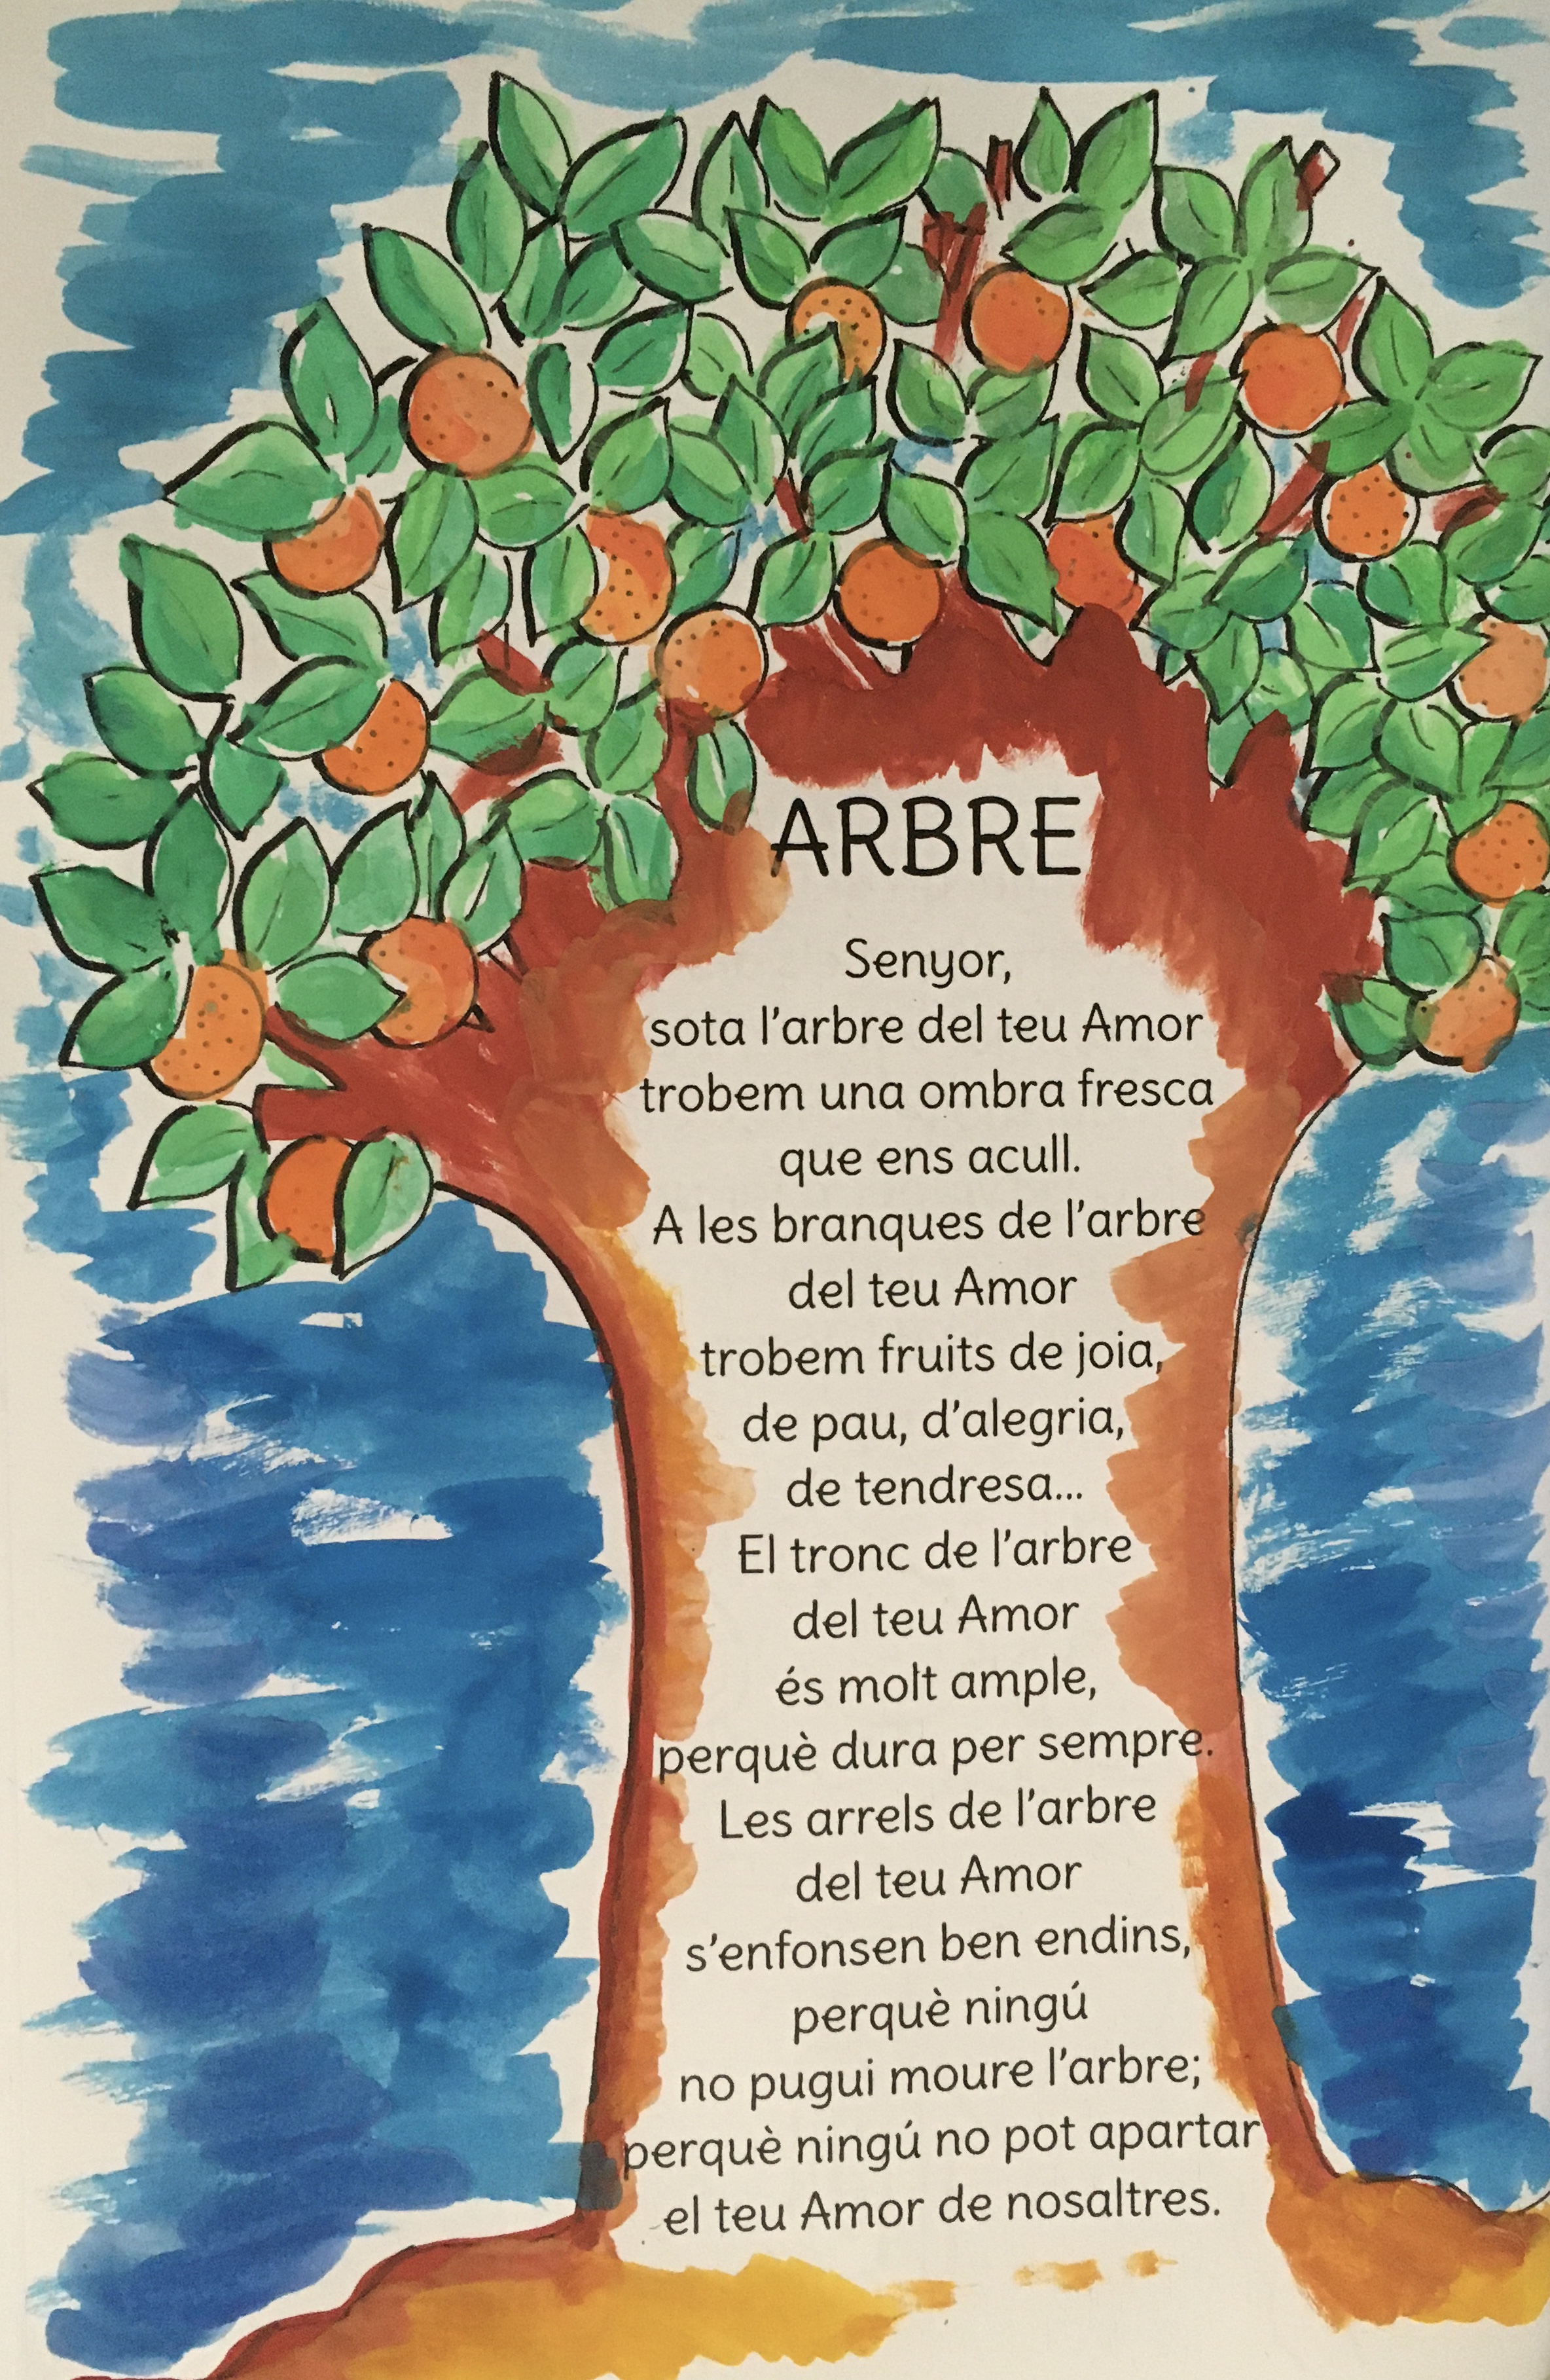 ARBRE
Senyor,
sota l'arbre del teu Amor
trobem una ombra fresca
que ens acull.
A les branques de l'arbre
del teu Amor
trobem fruits de joia,
de pau, d'alegria,
de tendresa...
El tronc de l'arbre
del teu Amor
és molt ample,
perquè dura per sempre.
Les arrels de l'arbre
del teu Amor
s'enfonsen ben endins,
perquè ningú
no pugui moure l'arbre;
perquè ningú no pot apartar
el teu Amor de nosaltres.